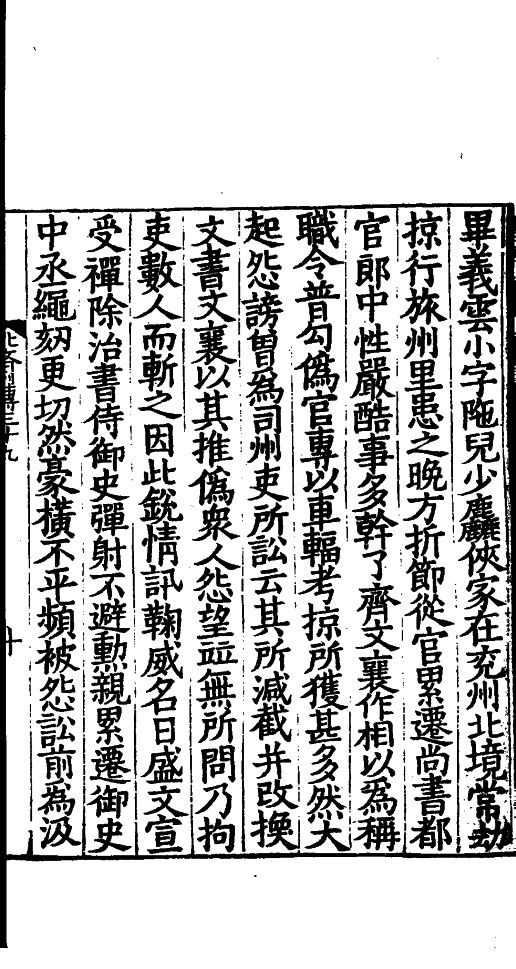 畢義雲小字陁兒少麤俠家在兖州北境常劫
掠行旅州里患之晚方折節從官累遷尚書都
官郎中性嚴酷事多幹了齊文襄作相以為稱
職令普勾僞官專以車輻考掠所獲甚多然大
起怨謗曽為司州吏所訟云其所減截并改換
文書文襄以其推僞衆人怨望並無所問乃拘
吏數人而斬之因此銳情訊鞠威名日盛文宣
受禪除治書侍御史彈射不避勲親累遷御史
中丞繩劾更切然豪橫不平頻被怨訟前為汲
北齊列傳三十九
十